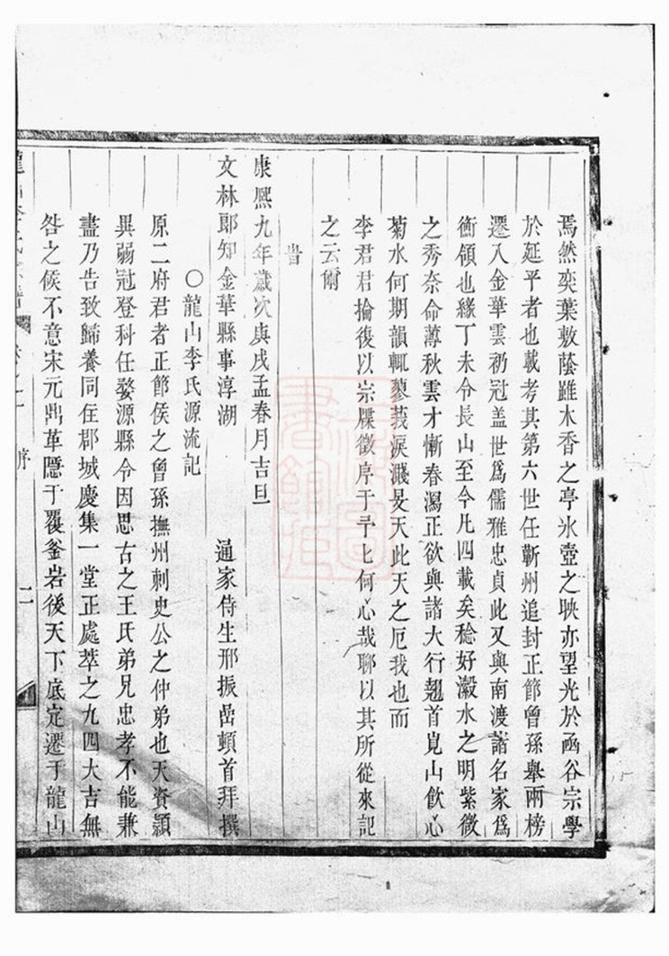 焉然奕葉敷蔭雖木香之亭氷壺之映亦望光於函谷宗學
於延平者也載考其第六世任蘄州追封正節曾孫舉兩榜
遷入金華雲礽冠盖世爲儒雅忠貞此又與南渡諸名家爲
衡領也緣丁未令長山至今凡四載矣稔好瀫水之明紫微
之秀奈命薄秋雲才慚春瀉正欲與諸大行翹首崑山飲心
菊水何期韻輒蓼莪淚濺旻天此天之厄我也而
李君君掄後以宗牒徵序于予七何心哉聊以其所從來記
之云爾
旹
康熙九年歲次庚戌孟春月吉旦
文林郎知金華縣事淳湖 通家侍生邢振嵒頓首拜撰
○龍山李氏源流記
原二府君者正節侯之曾孫撫州刺史公之仲弟也天資穎
異弱冠登科任婺源縣令因思古之王氏弟兄忠孝不能兼
盡乃告致歸養同住郡城慶集一堂正處萃之九四大吉無
咎之候不意宋元鼎革隱于覆釜岩後天下底定遷于龍山
序 二